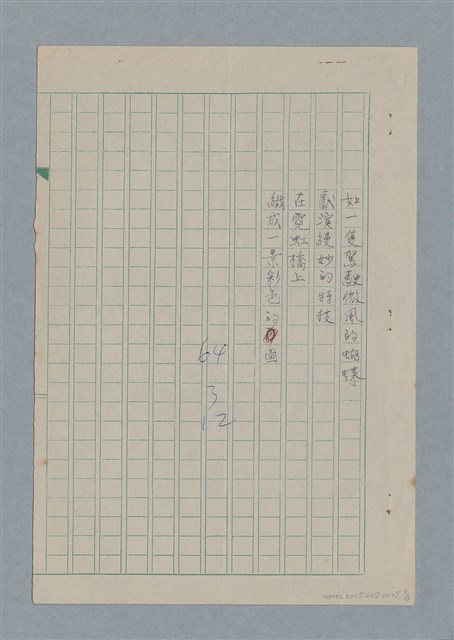 如一隻駕駛微風的蝴蝶
獻演縵妙的特技
在霓虹橋上
織成一景彩色的圖
64
3
12